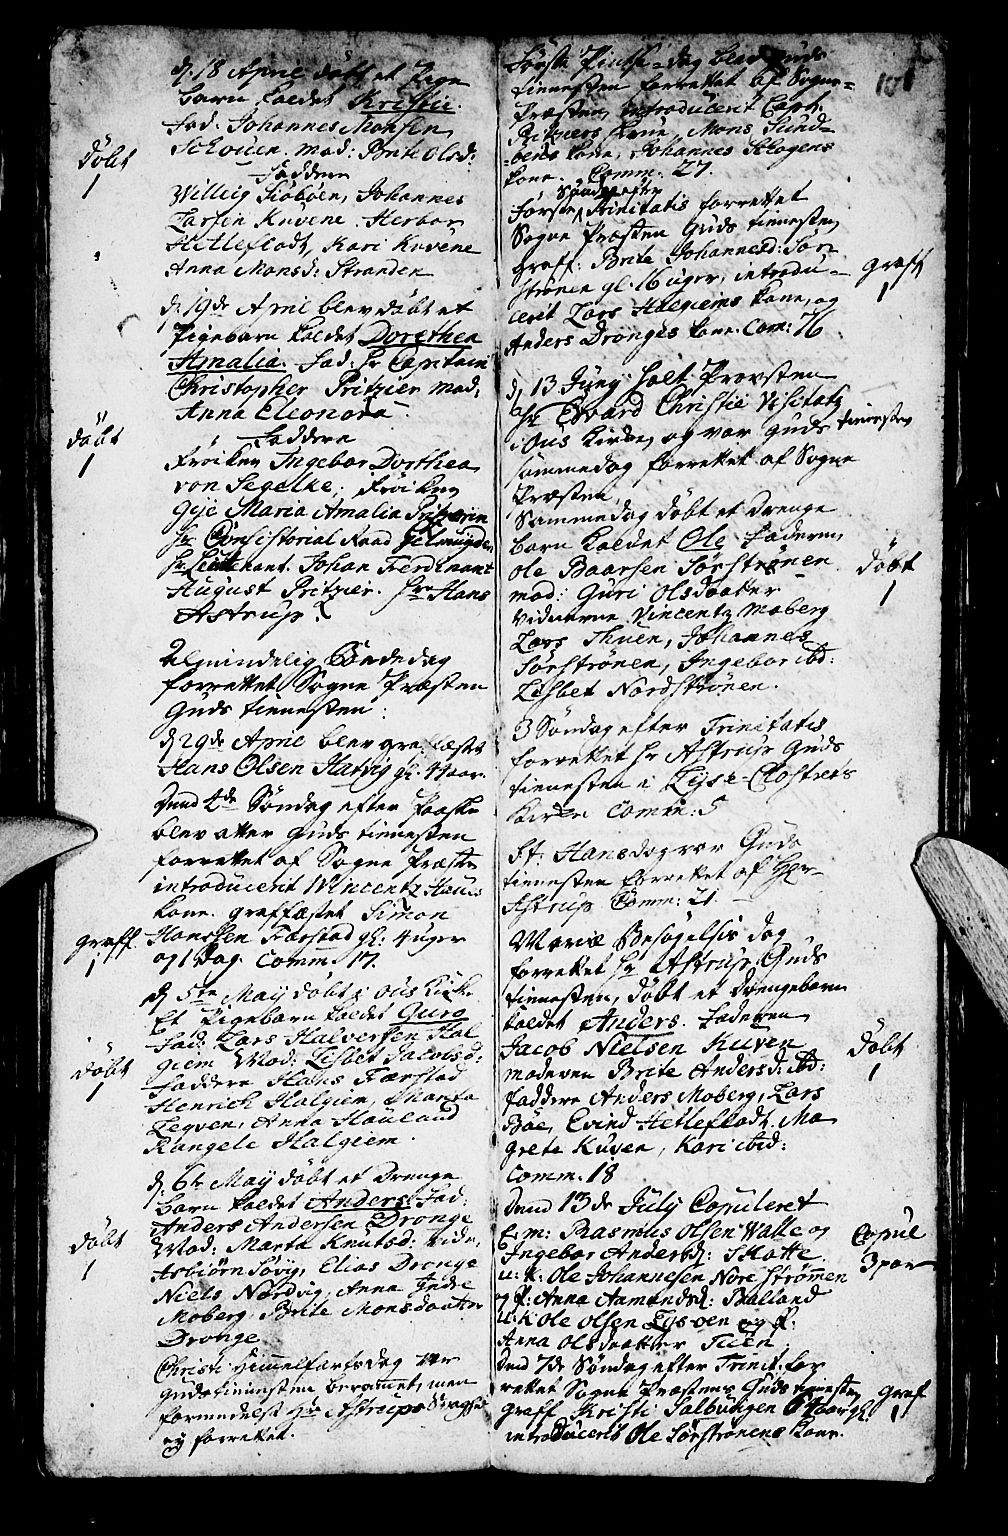 d. 18 April döbt et Pige
barn kaldet Kristie.
Fad: Johannes Monsen
Schouen. mod: Brite Olsd:
döbt
1
Faddere
Willeig Siöböen, Johannes
Larsen Kuvene. Herbor
Hetleflodt, Kari Kuvene
Anna Monsd: Stranden
d. 19de April blev döbt et
Pigebarn kaldet Dorethea
Amalia. Fad: hr Capitain
Christopher Pritzier mod:
Anna Eleonora.
döbt
1
Faddere
Fröiken Ingebor Dorthea
von Segelke, Fröiken
Gije Maria Amalia Pritzerin
hr Consistorial Raad
hr Lieutenant Johan Ferdinant
August Pritzier. Hans
Astrup
Almindelig Böndedag
forrettet Sogne Præsten
Guds tienesten.
d. 29de April blev græffæstet
Hans Olsen Hatvig gl. 4 aar.
Dend 4de Söndag efter Paaske
blev atter Guds tienesten
forrettet af Sogne Præsten
introducerit Wincentz
kone. græffæstet Simon
graff
1
Hanssen Færstad gl: 4 uger
og 1 dag. Comm. 17.
d. 5te Maij döbt i Ous Kirke
Et Pigebarn kaldet Guro
Fad: Lars Halversen Hal
giem Mod: Lisbet Jacobsd:
döbt
1
Faddere Hans Færstad
Henrich Halgiem, Marita
Legven, Anna Houland
Rangele Halgiem.
d. 6te Maij döbt et Drenge
barn kaldet Anders Fad:
Anders Andersen Dronge
Mod: Marta Knutsd: vidn,
döbt
1
Asbiörn Sövig, Elias Dronge
Niels Nordvig, Anna Indre
Moberg, Brite Monsdaatter
Dronge
Christi Himmelfartsdag var
gudstienesten berammet, men
formedelst Hr Astrups
ey forrettet.
101
Förste Pintse-dag blev Guds
tienesten forrettet af Sogne-
Præsten, introducerit Capt.
Pritziers Frue, Mons Sund-
kone, Johannes Skogens
kone. Comm: 27.
Söndag efter
Förste Trinitatis forrettet
Sogne Præsten Guds tienesten,
graff: Brite Johannesd: Sör
strönen gl. 16 uger, introdu-
graff
1
cerit Lars Halgiems kone, og
Anders Dronges kone. Com: 76
d. 13 Junij holt Provsten
hr Edvard Christie Visitatz
i Ous Kirke, og var Guds tienesten
samme dag forrettet af Sogne
Præsten
Samme dag döbt et Drenge
barn kaldet Ole Faderen
Ole Baarsen Sörströnen
döbt
1
mod: Guri Olsdaater
vidnerne Vincentz Moberg
Lars Thuen, Johannes
Sörströnen, Ingebor ibd:
Lisbet Nordströnen.
3 Söndag efter Trinitatis
forrettet hr Astrup Guds
tienesten i Lyse-Closters
Kirke Comm: 5
St: Hansdag var Guds
tienesten forrettet af Her-
Astrup Comm: 21.
Mariæ Besögelsis dag
forrettet hr Astrup Guds
tienesten, döbt et Drengebarn
kaldet Anders. Faderen
Jacob Nielsen Kuven
döbt
1
moderen Brite Andersd: ibd:
faddere Anders Moberg, Lars
Böe, Eivind Hetleflodt. Ma
grete Kuven, Kari ibid:
Comm. 18
Dend 13de Julij Copuleret
E. m: Rasmus Olsen Valle og
Copul
3 par
Ingebor Andersd: Skotte
u. k: Ole Johannesen Nore Strömmen
og P: Anna Aamundsd: Balland
u. k Ole Olsen Lysven og P:
Anna Olsdaatter Tuen
Dend 7de Söndag efter Trinit. for
rettet Sogne Præsten Guds tienesten
Graff Kristi Solbungen gl.
graf
1
introducerit Ole Sörströnens kone.